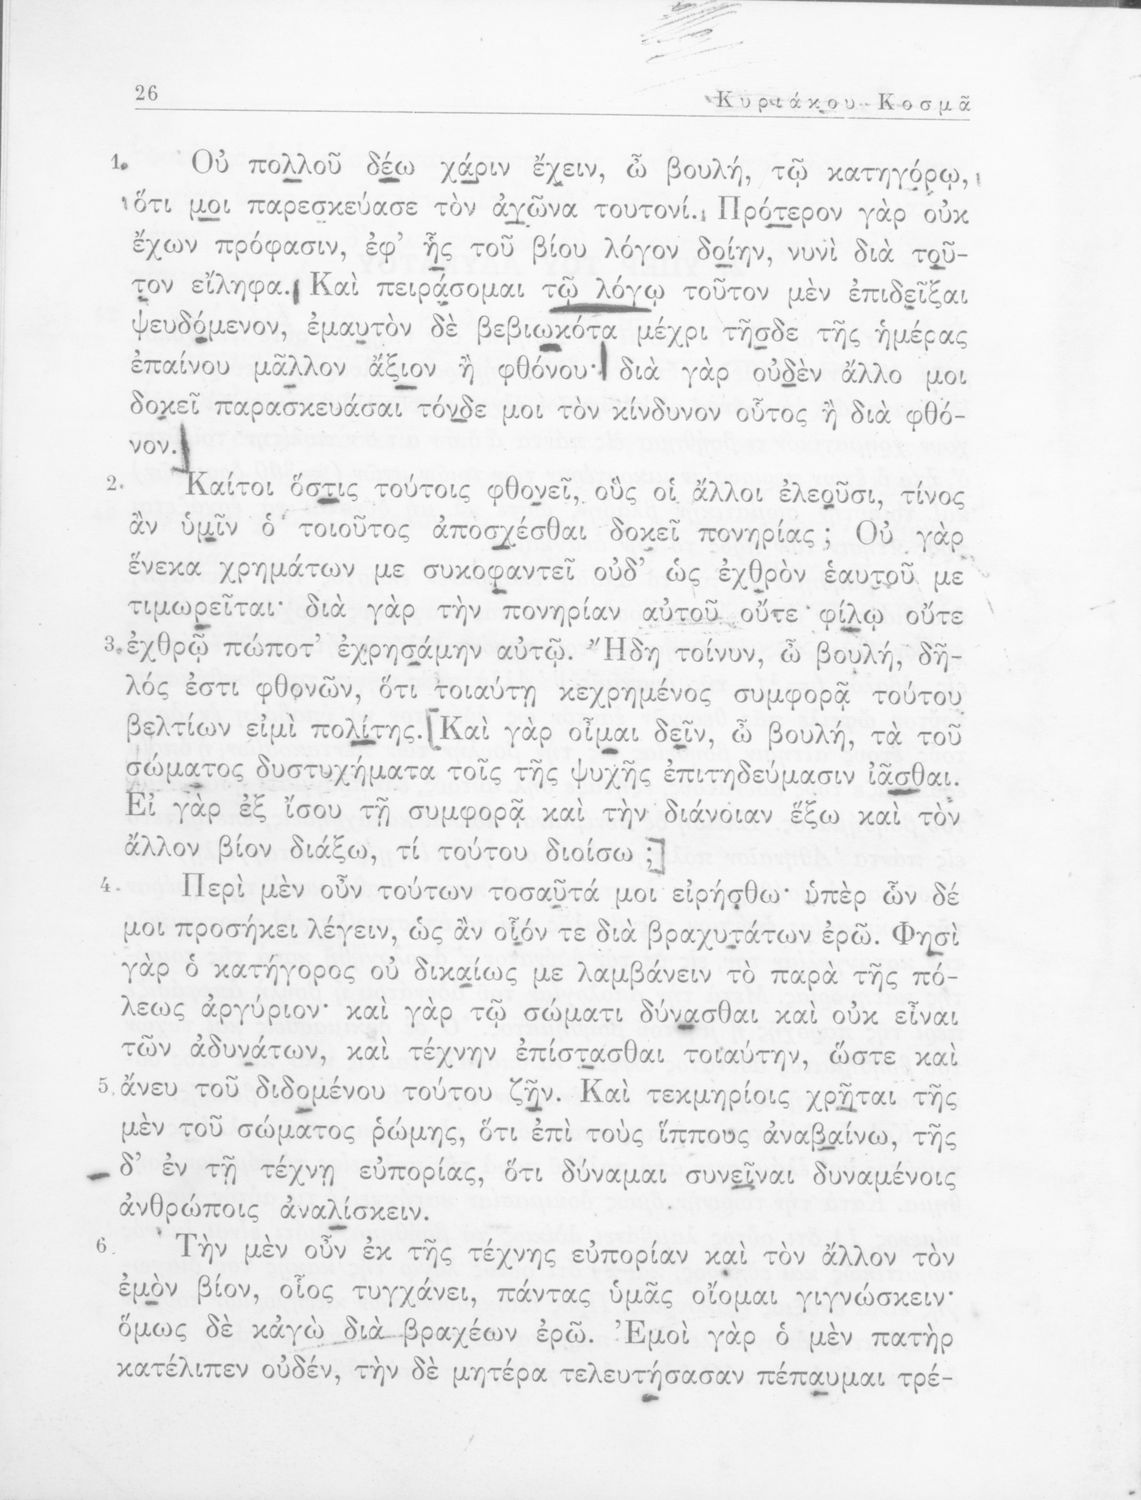 26 Κυριάκου Κοσμᾶ
1. Οὐ πολλοῦ δέω χάριν ἔχειν, ὦ βουλή, τῷ κατηγόρῳ,
ὅτι μοι παρεσκεύασε τὸν ἀγῶνα τουτονί. Πρότερον γὰρ οὐκ
ἔχων πρόφασιν, ἐφ’ ἧς τοῦ βίου λόγον δοίην, νυνὶ διὰ τοῦ-
τον εἴληφα. Καὶ πειράσομαι τῷ λόγῳ τοῦτον μὲν ἐπιδεῖξαι
ψευδόμενον, ἐμαυτὸν δὲ βεβιωκότα μέχρι τῆσδε τῆς ἡμέρας
ἐπαίνου μᾶλλον ἄξιον ἢ φθόνου· διὰ γὰρ οὐδὲν ἄλλο μοι
δοκεῖ παρασκευάσαι τόνδε μοι τὸν κίνδυνον οὗτος ἢ διὰ φθό-
νον.
2. Καίτοι ὅστις τούτοις φθονεῖ, οὓς οἱ ἄλλοι ἐλεοῦσι, τίνος
ἂν ὑμῖν ὁ τοιοῦτος ἀποσχέσθαι δοκεῖ πονηρίας; Οὐ γὰρ
ἕνεκα χρημάτων με συκοφαντεῖ οὐδ’ ὡς ἐχθρὸν ἑαυτοῦ με
τιμωρεῖται· διὰ γὰρ τὴν πονηρίαν αὐτοῦ οὔτε φίλῳ οὔτε
3. ἐχθρῷ πώποτ’ ἐχρησάμην αὐτῷ. Ἤδη τοίνυν, ὦ βουλή, δῆ-
λός ἐστι φθονῶν, ὅτι τοιαύτῃ κεχρημένος συμφορᾷ τούτου
βελτίων εἰμὶ πολίτης. [Καὶ γὰρ οἶμαι δεῖν, ὦ βουλή, τὰ τοῦ
σώματος δυστυχήματα τοῖς τῆς ψυχῆς ἐπιτηδεύμασιν ἰᾶσθαι.
Εἰ γὰρ ἐξ ἴσου τῇ συμφορᾷ καὶ τὴν διάνοιαν ἕξω καὶ τὸν
ἄλλον βίον διάξω, τί τούτου διοίσω ;]
4. Περὶ μὲν οὖν τούτων τοσαῦτά μοι εἰρήσθω· ὑπὲρ ὧν δέ
μοι προσήκει λέγειν, ὡς ἂν οἷόν τε διὰ βραχυτάτων ἐρῶ. Φησὶ
γὰρ ὁ κατήγορος οὐ δικαίως με λαμβάνειν τὸ παρὰ τῆς πό-
λεως ἀργύριον· καὶ γὰρ τῷ σώματι δύνασθαι καὶ οὐκ εἶναι
τῶν ἀδυνάτων, καὶ τέχνην ἐπίστασθαι τοιαύτην, ὥστε καὶ
5. ἄνευ τοῦ διδομένου τούτου ζῆν. Καὶ τεκμηρίοις χρῆται τῆς
μὲν τοῦ σώματος ῥώμης, ὅτι ἐπὶ τοὺς ἵππους ἀναβαίνω, τῆς
δ’ ἐν τῇ τέχνῃ εὐπορίας, ὅτι δύναμαι συνεῖναι δυναμένοις
ἀνθρώποις ἀναλίσκειν.
6. Τὴν μὲν οὖν ἐκ τῆς τέχνης εὐπορίαν καὶ τὸν ἄλλον τὸν
ἐμὸν βίον, οἷος τυγχάνει, πάντας ὑμᾶς οἴομαι γιγνώσκειν·
ὅμως δὲ κἀγὼ διὰ βραχέων ἐρῶ. Ἐμοὶ γὰρ ὁ μὲν πατὴρ
κατέλιπεν οὐδέν, τὴν δὲ μητέρα τελευτήσασαν πέπαυμαι τρέ-